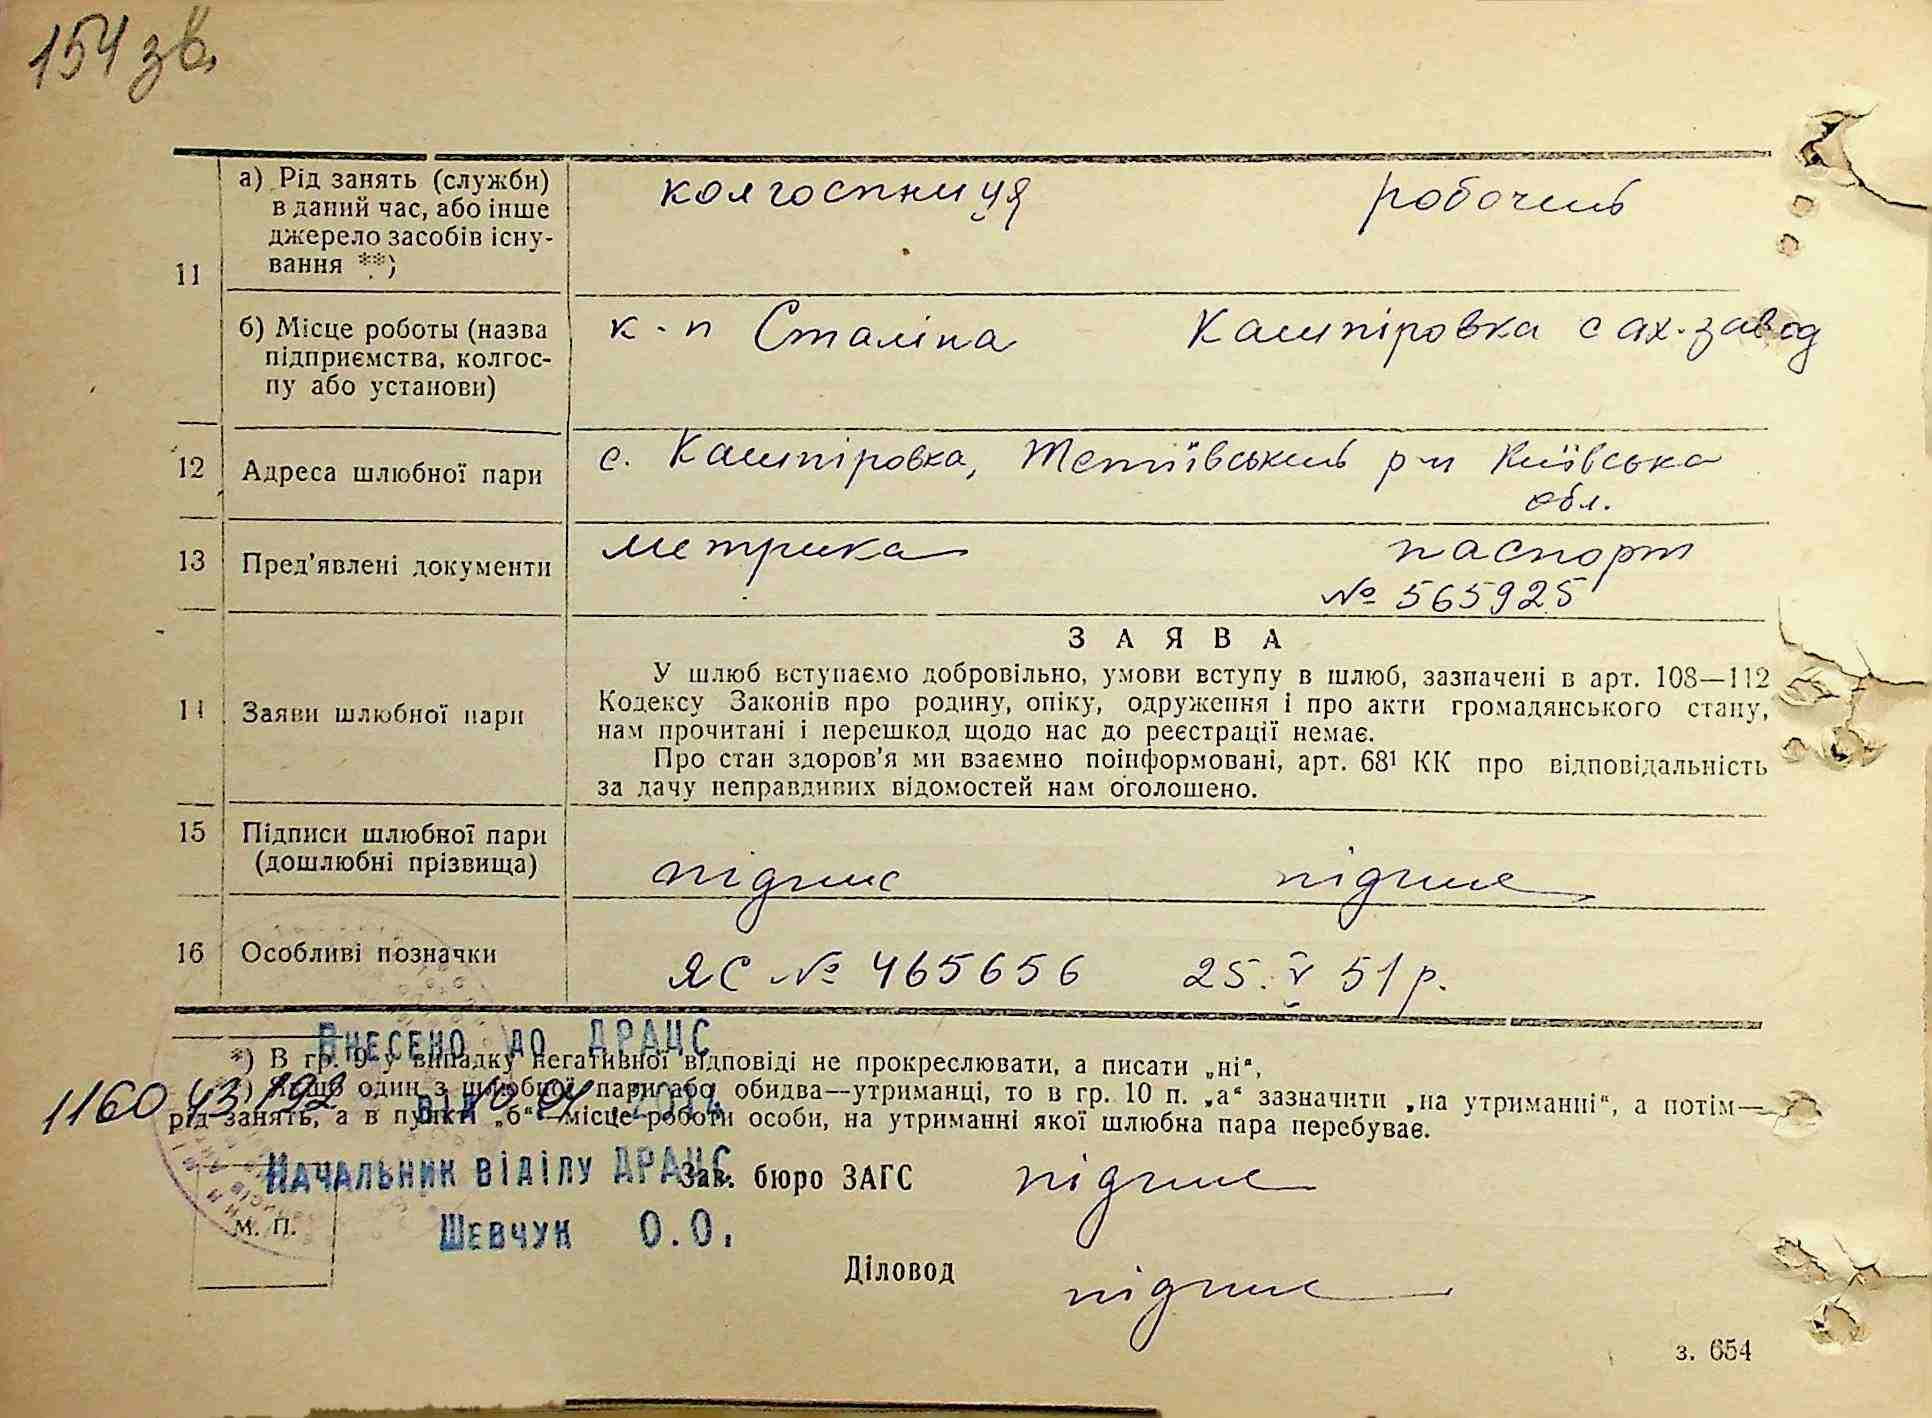 154 зв.
11
а) Рід занять (служби) в даний час, або інше джерело засобів існування **)
колгоспниця
робочий
б) Місце роботы (назва підприємства, колгоспу або установи)
к-п Сталіна
Кашпіровка сах. завод
12
Адреса шлюбної пари
с. Кашпіровка, Тетіївський р-н Київська
обл.
13
Пред’явлені документи
метрика
паспорт
№ 565925
З А Я В А
14
Заяви шлюбної пари
У шлюб вступаємо добровільно, умови вступу в шлюб, зазначені в арт. 108—112
Кодексу Законів про родину, опіку, одруження і про акти громадянського стану,
нам прочитані і перешкод щодо нас до реєстрації немає.
Про стан здоров’я ми взаємно поінформовані, арт. 68¹ КК про відповідальність
за дачу неправдивих відомостей нам оголошено.
15
Підписи шлюбної пари
(дошлюбні прізвища)
підпис
підпис
16
Особливі позначки
ЯС № 465656 25.V 51 р.
Внесено до ДРАЦС
*) В гр. 9 у випадку негативної відповіді не прокреслювати, а писати „ні“,
**) Якщо один з шлюбної пари або обидва—утриманці, то в гр. 10 п. „а“ зазначити „на утриманні“, а потім—
рід занять, а в пункті „б“—місце роботи особи, на утриманні якої шлюбна пара перебуває.
Начальник відділу ДРАЦС
Зав. бюро ЗАГС
підпис
М. П.
Шевчук О.О.
Діловод
підпис
з. 654